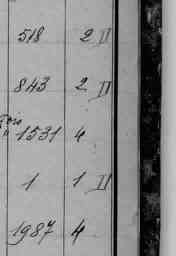 518 2 II
843 2 II
" 1531 4
1 1 II
1987 4